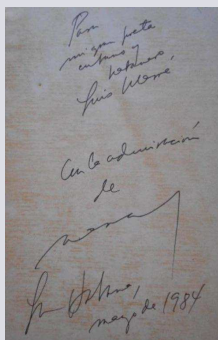 Para
mi gran poeta
cubano y
hermano,
Luis
Con la admiración
de
La Habana,
mayo de 1984